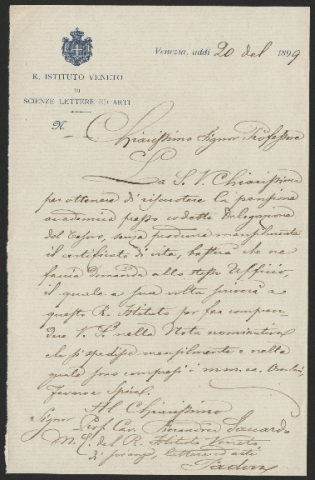 Venezia, addì 20 del 1899
R. ISTITUTO VENETO
DI
SCIENZE LETTERE ED ARTI
N.
Chiarissimo Signor Professore
La S. V. Chiarissima
per ottenere di riscuotere la pensione
accademica presso codesta Delegazione
del Tesoro, senza produrre mensilmente
il certificato di vita, basterà che ne
faccia domanda allo stesso Ufficio,
il quale a sua volta scriverà a
questo R. Istituto per far comprendere
V. S. nella Nota nominativa
che si spedisce mensilmente e nella
quale sono compresi i mm. ee.
Al Chiarissimo
Signor Prof. Cav. Pierandrea Saccardo
M. E. del R. Istituto Veneto
di scienze, lettere ed arti
Padova